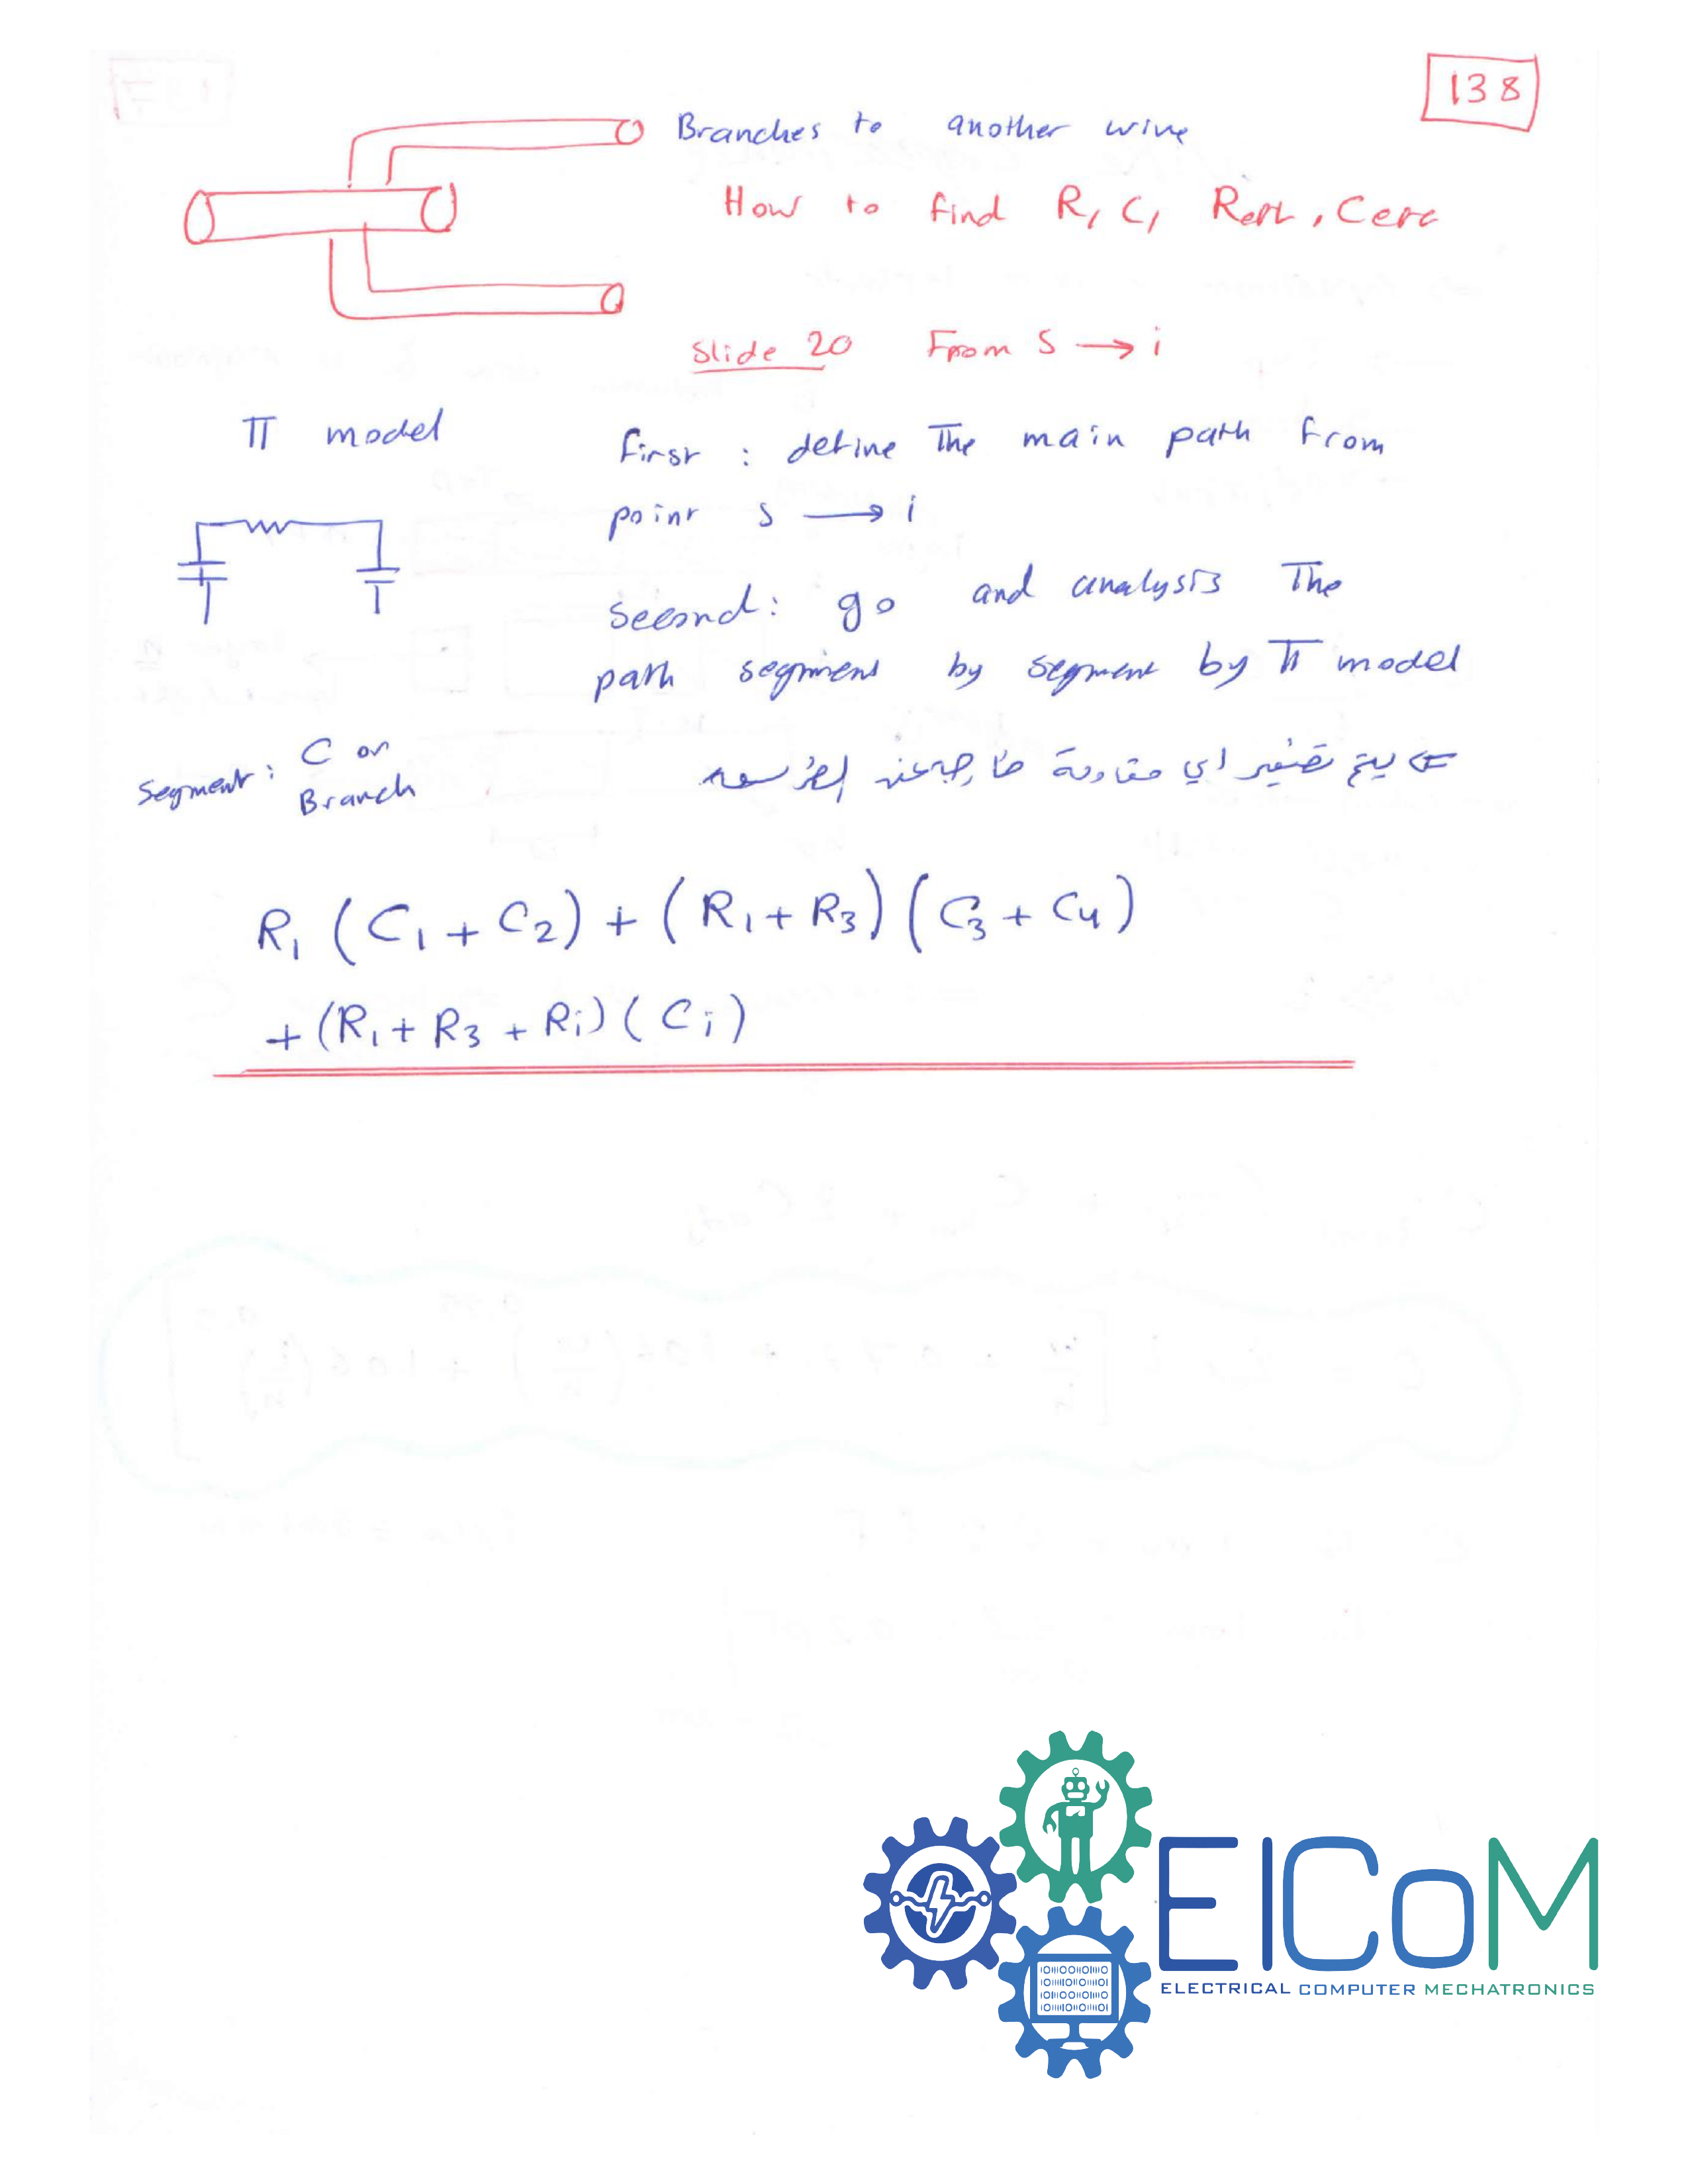 138
Branches to another wire
How to find R, C, Reff, Ceff
Slide 20 From S → i
π model
first : define The main path from
point s → i
second: go and analysis The
path segment by segment by π model
segment : C or
Branch
⇐ يتم تصفير اي مقاومة خارجة عن
R1 (C1 + C2) + (R1 + R3) (C3 + C4)
+ (R1 + R3 + Ri) (Ci)
EICoM
ELECTRICAL COMPUTER MECHATRONICS